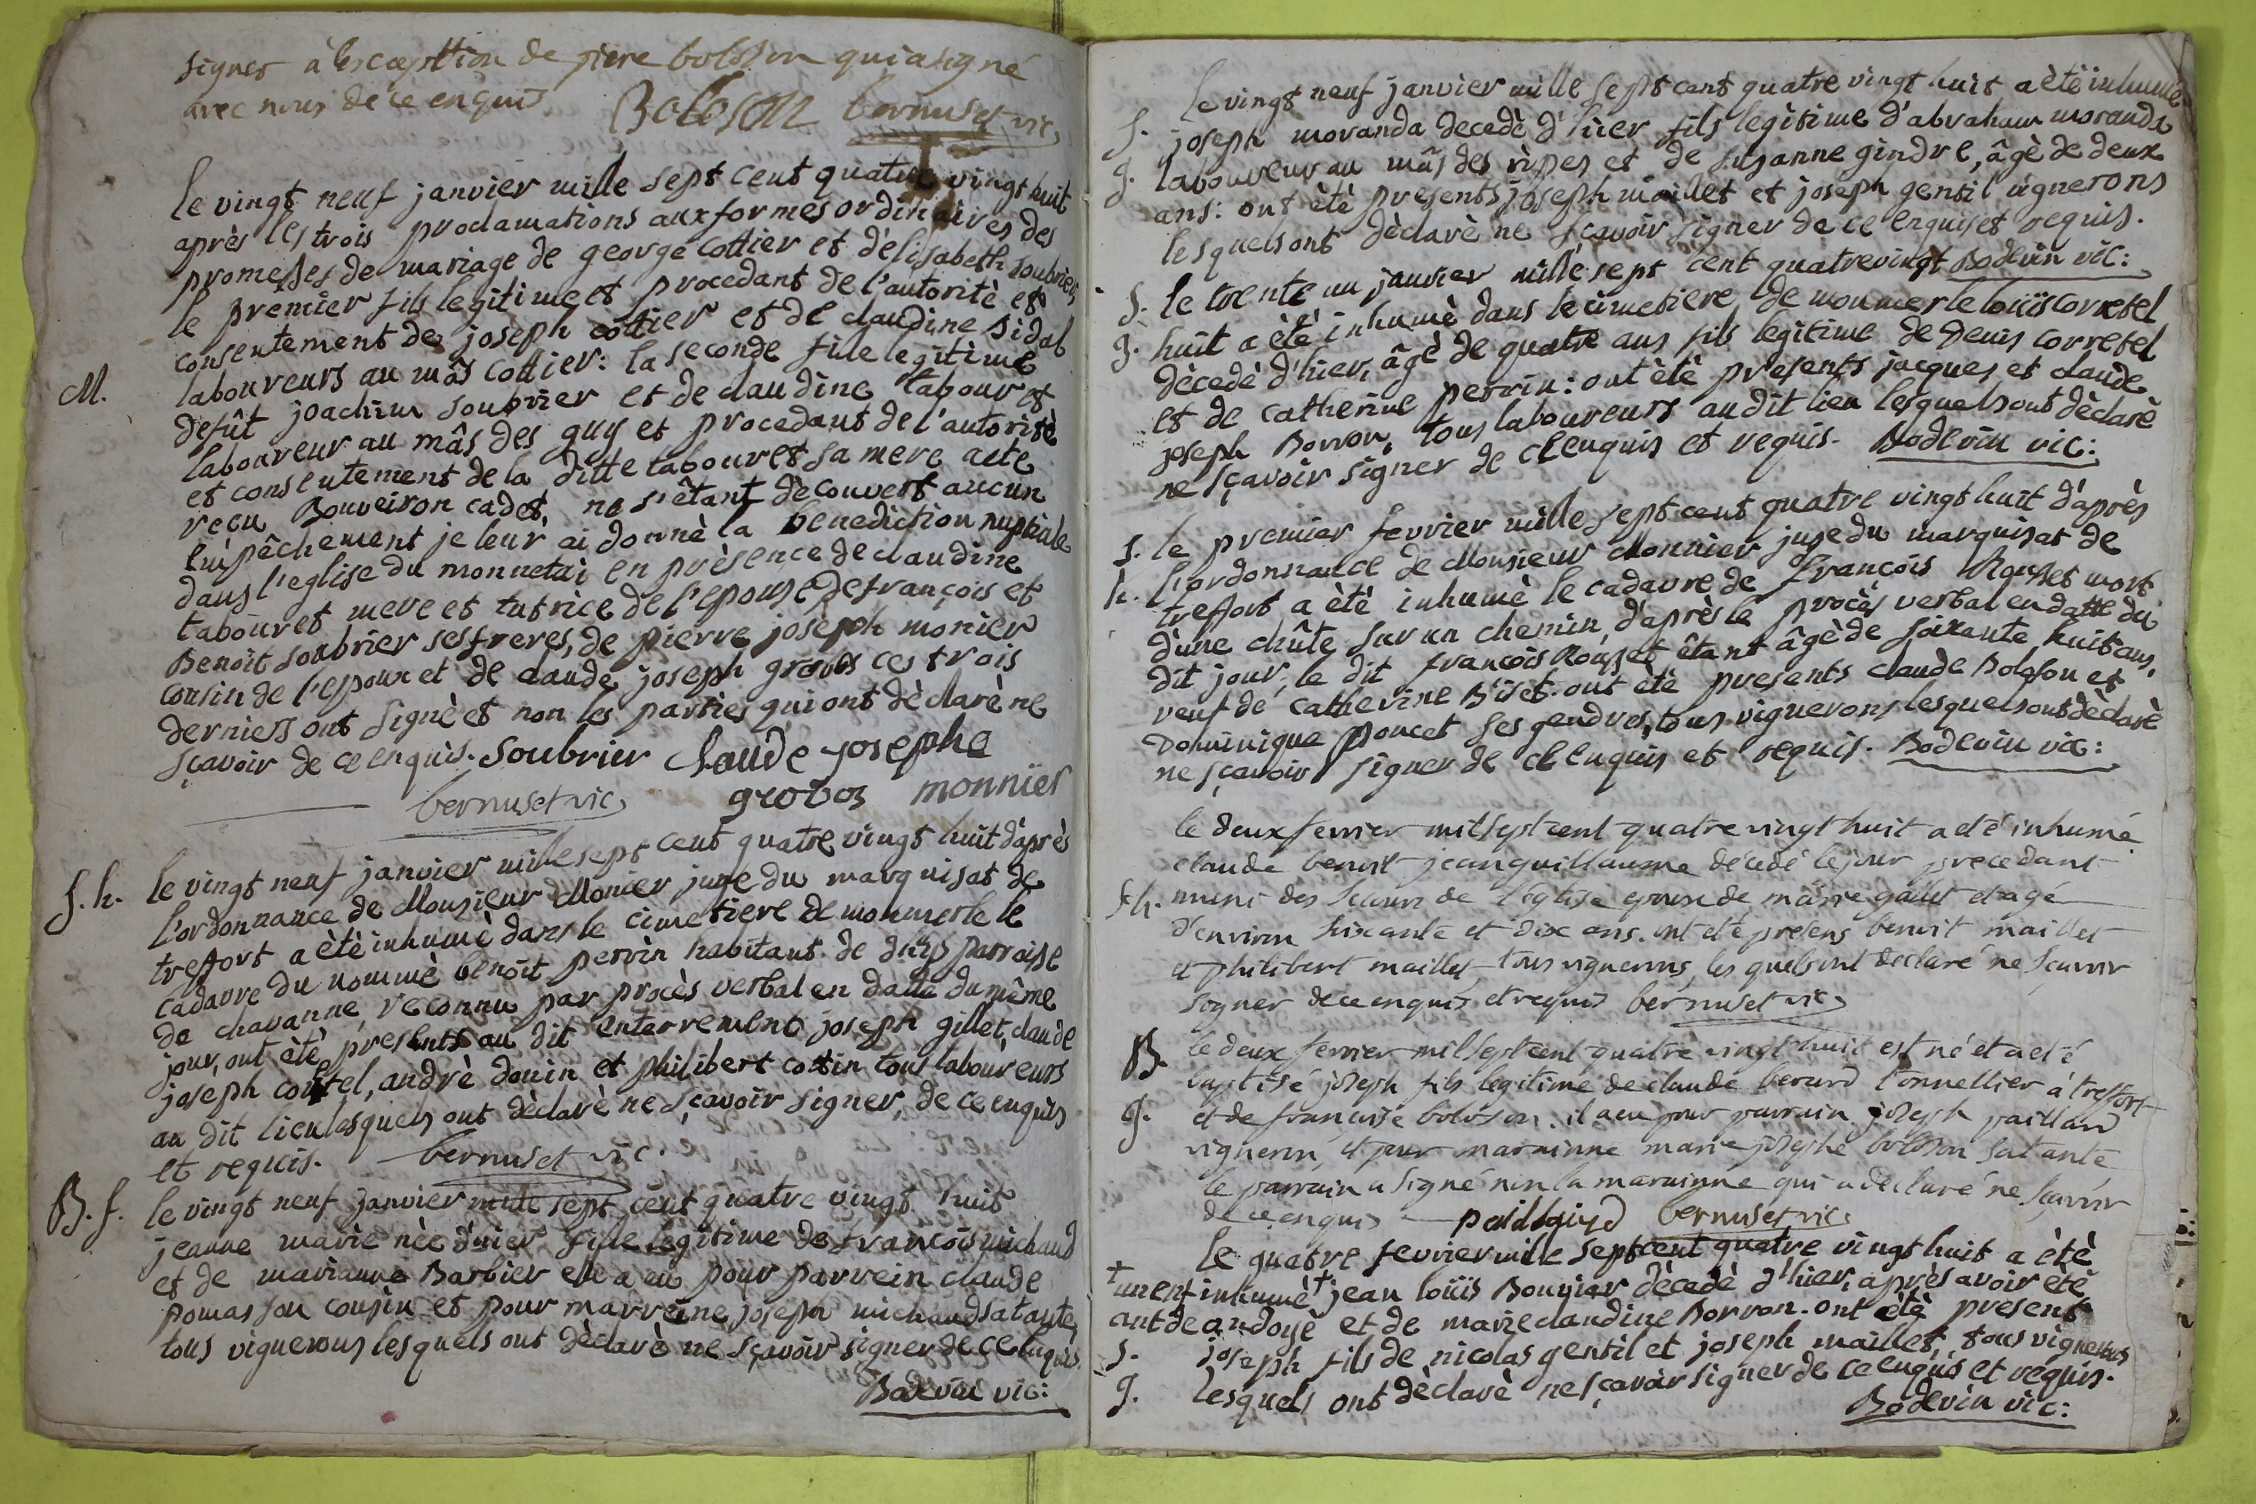 signer à l'exception de piere boloson qui a signé
avec nous de ce enquis Boloson bernuset vic
le vingt neuf janvier mille sept cent quatre vingt huit
après les trois proclamations aux formes ordinaires des
promesses de mariage de george cottier et d'elisabeth soubrier
le premier fils legitime et procedant de l'autoritè et
consentement de joseph cottier et de claudine Bidal
laboureurs au mâs cottier: la seconde fille legitime
M.
defût joachim soubrier et de claudine tabouret
laboureur au mâs des guy et procedant de l'autoritè
et consentement de la ditte tabouret sa mere acte
recu Bouveiron cadet, ne s'êtant dècouvert aucun
empêchement je leur ai donnè la benediction nuptiale
dans l'eglise du monnetai en prèsence de claudine
tabouret mere et tutrice de l'epouse de françois et
Benoît soubrier ses freres, de pierre joseph monier
cousin de l'epoux et de claude joseph grobos ces trois
derniers ont signè et non les parties qui ont dèclarè ne
sçavoir de ce enquis. Soubrier Claude josephe
bernuset vic groboz monnier
S. h. le vingt neuf janvier mille sept cent quatre vingt huit d'après
l'ordonnance de Monsieur Monier juge du marquisat de
treffort a ètè inhumè dans le cimetiere de monmerle le
cadavre du nommè benoît perrin habitant de parroisse
de chavanne, reconnu par procès verbal en datte du même
jour, ont ètè presents au dit enterrement joseph gillet, claude
joseph cortel, andrè douin et philibert cottin tous laboureurs
au dit lieu lesquels ont dèclarè ne sçavoir signer, de ce enquis
et requis. bernuset vic.
B. f. le vingt neuf janvier mille sept cent quatre vingt huit
jeanne marie nèe d'hier fille legitime de françois michaud
et de marianne Barbier elle a eu pour parrein claude
pomas son cousin et pour marreine joseph michaud sa tante
tous vignerons lesquels ont dèclarè ne sçavoir signer de ce enquis
Bodevin vic:
le vingt neuf janvier mille sept cent quatre vingt huit a ètè inhumè
S. joseph moranda decedè d'hier fils legitime d'abraham moranda
g. laboureur au mâs des ripes et de suzanne gindre, âgè de deux
ans: ont ètè presents joseph maillet et joseph gentil vignerons
lesquels ont dèclarè ne sçavoir signer de ce enquis et requis.
Bodevin vic:
S. le trente un janvier mille sept cent quatre vingt
g. huit a ètè inhumè dans le cimetiere de monmerle loüis corretel
dècedè d'hier, âgè de quatre ans fils legitime de Denis corretel
et de catherine perrin: ont ètè presents jacques et claude
joseph Borron, tous laboureurs au dit lieu lesquels ont dèclarè
ne sçavoir signer de ce enquis et requis. Bodevin vic:
S. le premier fevrier mille sept cent quatre vingt huit d'après
h. l'ordonnance de Monsieur Monnier juge du marquisat de
treffort a ètè inhumè le cadavre de françois Rousset mort
d'une chûte sur un chemin d'après le procès verbal en datte du
dit jour, le dit françois Rousset êtant âgè de soixante huit ans,
veuf de catherine Biset. ont ètè presents claude Boloson et
Dominique poncet ses gendres, tous vignerons lesquels ont dèclarè
ne sçavoir signer de ce enquis et requis. Bodevin vic:
le deux fevrier mil sept cent quatre vingt huit a eté inhumé
claude benoit jeanguillaume décedé le jour precedant
S.h. muni des secours de l'eglise epoux de marie et agé
d'environ soixante et dix ans. ont eté presens benoit maillet
et philibert maillet tous vignerons, les quels ont declaré ne sçavoir
signer de ce enquis et requis bernuset vic
B. le deux fevrier mil sept cent quatre vingt huit est né et a eté
baptisé joseph fils legitime de claude berard tonnellier à treffort
g. et de françoise boloson. il a eu pour parrain joseph paillard
vigneron, et pour marainne marie josephe boloson sa tante
le parrain a signé non la marainne qui a declaré ne sçavoir
de ce enquis bernuset vic
le quatre fevrier mille sept cent quatre vingt huit a ètè
inhumè + jean loüis Bouvier dècedè d'hier, après avoir ètè
andoyè et de marie claudine Borron. ont ètè present
S. joseph fils de nicolas gentil et joseph maillet, tous vignerons
g. lesquels ont dèclarè ne sçavoir signer de ce enquis et requis.
Bodevin vic: